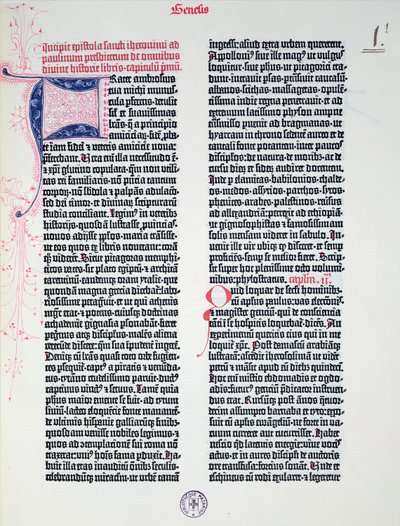 Genesis
1.
Incipit epistola sancti iheronimi ad
paulinum presbiterum de omnibus
divine historie libris· capitulū pmū·
Frater ambrosius
tua michi munus-
cula pferens· detulit
sil et suavissimas
lrās· q̄ a principio
amicicia⁊· fidē pba-
te iam fidei ⁊ veteris amicicie nova:
pferebant. Vera eni illa necessitudo ē·
⁊ xpi glutino copulata· qm non utili-
tas rei familiaris· nō pncia tantum
corpor⁊· nō sbdola ⁊ palpās adulacō·
sed dei timor· et divina⁊ scripturarū
studia conciliant. Legim⁹ in veteribꝫ
historijs· quosdā lustrasse puincias·
novos adijsse pplos· maria trāsisse·
ut eos quos ex libris noverant: corā
qꝫ viderēt. Sicut pitagoras memphi-
ticos vates· sic plato egiptū ⁊ archita
tarentinū· eandemqꝫ oram ytalie· que
quondā magna grecia dicebat̄: labo-
riosissime peragravit· et ut qui athenis
mgr erat· ⁊ potens· cuiusqꝫ doctrinas
achademie gignasia psonabāt· fieret
peregrinus atqꝫ discipulus· malēs aliena
verecunde discere: qm sua ipudent ingere.
Deniqꝫ cū lrās quasi toto orbe fugien-
tes psequit̄· capt⁹ a piratis ⁊ venūda-
tus· tyrāno crudelissimo paruit· duct⁹
captivus vinct⁹ ⁊ servus. Tamē quia
phus maior emente se fuit· ad tytum
livium· lacteo eloquētie fonte manantē·
de ultimis hispanie galliarūqꝫ finibꝫ·
quosdam venisse nobiles legimus·
⁊ quos ad contemplacionē sui roma nō
traxerat: uni⁹ hoīs fama pduxit. Ha-
buit illa etas inauditū oībꝫ seculis·
celebrandūqꝫ miraculū· ut urbē tantā
ingressi: aliud extra urbem quererent.
Appolloni⁹ sive ille mag⁹ ut vulgus
loquitur· sive phus· ut pitagorici tra-
dunt· intravit psas· ptransivit caucasū·
albanos· scithas· massagetas· opulē-
tissima indie regna penetravit: et ad
extremum latissimo physon ampne
trāsmisso puenit ad bragmanas· ut
hyarcam in throno sedentē aureo et de
tantali fonte potantem· inter paucos
discipulos· de natura· de moribꝫ· ac de
cursu dierū et siderū audiret docentem.
Inde p elamitas· babilonios· chalde-
os· medos· assyrios· parthos· syros·
phenices· arabes· palestinos· reversus
ad allexandriā: perrexit ad ethiopiā·
ut gignosophistas ⁊ famosissimam
solis mensam videret in sabulo. In-
venit ille vir ubiqꝫ qd disceret: et semp
proficiēs· semp se melior fieret. Scrip-
sit super hoc plenissime octo volumi-
nibus: phylostratus. capitulū ij·
Quid loquar de seculi hominibꝫ·
cū aplus paulus· vas electōnis·
⁊ magister gencium· qui de conscientia
tāti ī se hospitis loquebatur dicēs· An
experimentū queritis eius qui in me
loquit̄ xpc. Post damascū arabiāqꝫ
lustratā: ascēdit iherosolimā ut videret
petrū ⁊ māsit apud eū diebꝫ quindecī.
Hoc eni misterio ebdomadis et ogdo-
adis: futur⁹ genciū pdicator instruen-
dus erat. Rursūqꝫ post ānos quatuor-
decim assumpto barnaba et tyto: expo-
suit cū aplis ewāgeliū· ne forte in va-
cuum curreret aut cucurrisset. Habet
nescio qd latentis energie: vive vocis
actus· et in aures discipli de auctoris
ore transfusa: forcius sonat. Unde et
eschineus cū rodi exularet· ⁊ legeretur